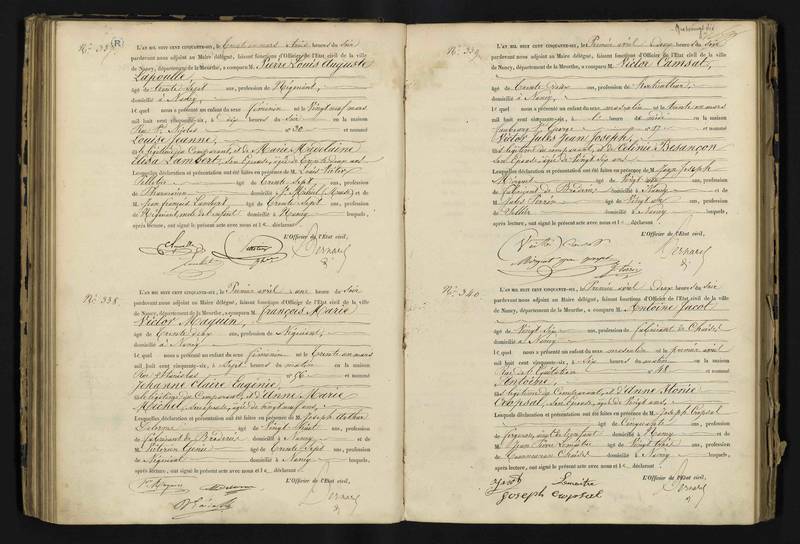 N° 337
R
L'AN MIL HUIT CENT CINQUANTE-SIX, le trente un mars trois heures du Soir
pardevant nous adjoint au Maire délégué, faisant fonctions d'Officier de l'Etat civil de la ville
de Nancy, département de la Meurthe, a comparu M. Pierre Louis Auguste
Lapouille
âgé de trente Sept ans, profession de Négociant,
domicilié à Nancy,
lequel nous a présenté un enfant du sexe féminin né le Vingt neuf mars
mil huit cent cinquante-six, à six heures du Soir en la maison
Rue St. Nicolas n° 30 et nommé
Louise Jeanne,
fille légitime du Comparant, et de Marie Madelaine
Elisa Lambert, son épouse, âgée de trente deux ans
Lesquelles déclaration et présentation ont été faites en présence de M. Louis Victor
Pelletier âgé de trente Sept ans, profession
de domicilié à St. Mihiel (Meuse) et de
M. Jean François Lambert âgé de trente Sept ans, profession
de Négociant, oncle de l'enfant domicilié à Nancy lesquels,
après lecture, ont signé le présent acte avec nous et le déclarant
L'Officier de l'Etat civil,
Bernard
N° 338.
L'AN MIL HUIT CENT CINQUANTE-SIX, le Premier avril une heures du Soir
pardevant nous adjoint au Maire délégué, faisant fonctions d'Officier de l'Etat civil de la ville
de Nancy, département de la Meurthe, a comparu M. François Marie
Victor Maguin,
âgé de trente deux ans, profession de Négociant,
domicilié à Nancy
lequel nous a présenté un enfant du sexe féminin né le trente un mars
mil huit cent cinquante-six, à Sept heures du matin en la maison
Rue Stanislas n° 56 et nommé
Jehanne Claire Eugénie,
fille légitime du Comparant, et d'Anne Marie
Michel, son épouse, âgée de vingt neuf ans,
Lesquelles déclaration et présentation ont été faites en présence de M. Joseph Arthur
Delorme âgé de Vingt huit ans, profession
de fabricant de Broderies domicilié à Nancy et de
M. Victorien Génie âgé de trente Sept ans, profession
de Négociant domicilié à Nancy lesquels,
après lecture, ont signé le présent acte avec nous et le déclarant
L'Officier de l'Etat civil,
Vr Maguin Delorme Bernard
N° 339
L'AN MIL HUIT CENT CINQUANTE-SIX, le Premier avril deux heures du Soir
pardevant nous adjoint au Maire délégué, faisant fonctions d'Officier de l'Etat civil de la ville
de Nancy, département de la Meurthe, a comparu M. Victor Camsat,
âgé de trente deux ans, profession de
domicilié à Nancy,
lequel nous a présenté un enfant du sexe masculin né le trente un mars
mil huit cent cinquante-six, à heures de midi en la maison
faubourg St. George n° 17 et nommé
Victor Jules Jean Joseph,
fils légitime du comparant, et de Célinie Besançon
son épouse, âgée de Vingt six ans
Lesquelles déclaration et présentation ont été faites en présence de M. Jean Joseph
Mozent âgé de Vingt ans, profession
de fabricant de Broderies domicilié à Nancy et de
M. Jules Perrin âgé de Vingt six ans, profession
de Sellier domicilié à Nancy lesquels,
après lecture, ont signé le présent acte avec nous et le déclarant
L'Officier de l'Etat civil,
Bernard
N° 340.
L'AN MIL HUIT CENT CINQUANTE-SIX, le Premier avril deux heures du Soir
pardevant nous adjoint au Maire délégué, faisant fonctions d'Officier de l'Etat civil de la ville
de Nancy, département de la Meurthe, a comparu M. Antoine Jacot
âgé de Vingt Six ans, profession de fabricant de Chaises
domicilié à Nancy
lequel nous a présenté un enfant du sexe masculin né le premier avril
mil huit cent cinquante-six, à Six heures du matin en la maison
Rue de l'Equitation n° 48 et nommé
Antoine,
fils légitime du Comparant, et d'Anne Marie
Cropsal, son épouse, âgée de Vingt ans,
Lesquelles déclaration et présentation ont été faites en présence de M. Joseph Cropsal
âgé de Cinquante ans, profession
de forgeron, aïeul de l'enfant domicilié à Nancy et de
M. Jean Pierre Lemaitre âgé de Vingt trois ans, profession
de Tourneur en Chaises domicilié à Nancy lesquels,
après lecture, ont signé le présent acte avec nous et le déclarant
L'Officier de l'Etat civil,
Jacot Lemaitre Bernard
Joseph Cropsal